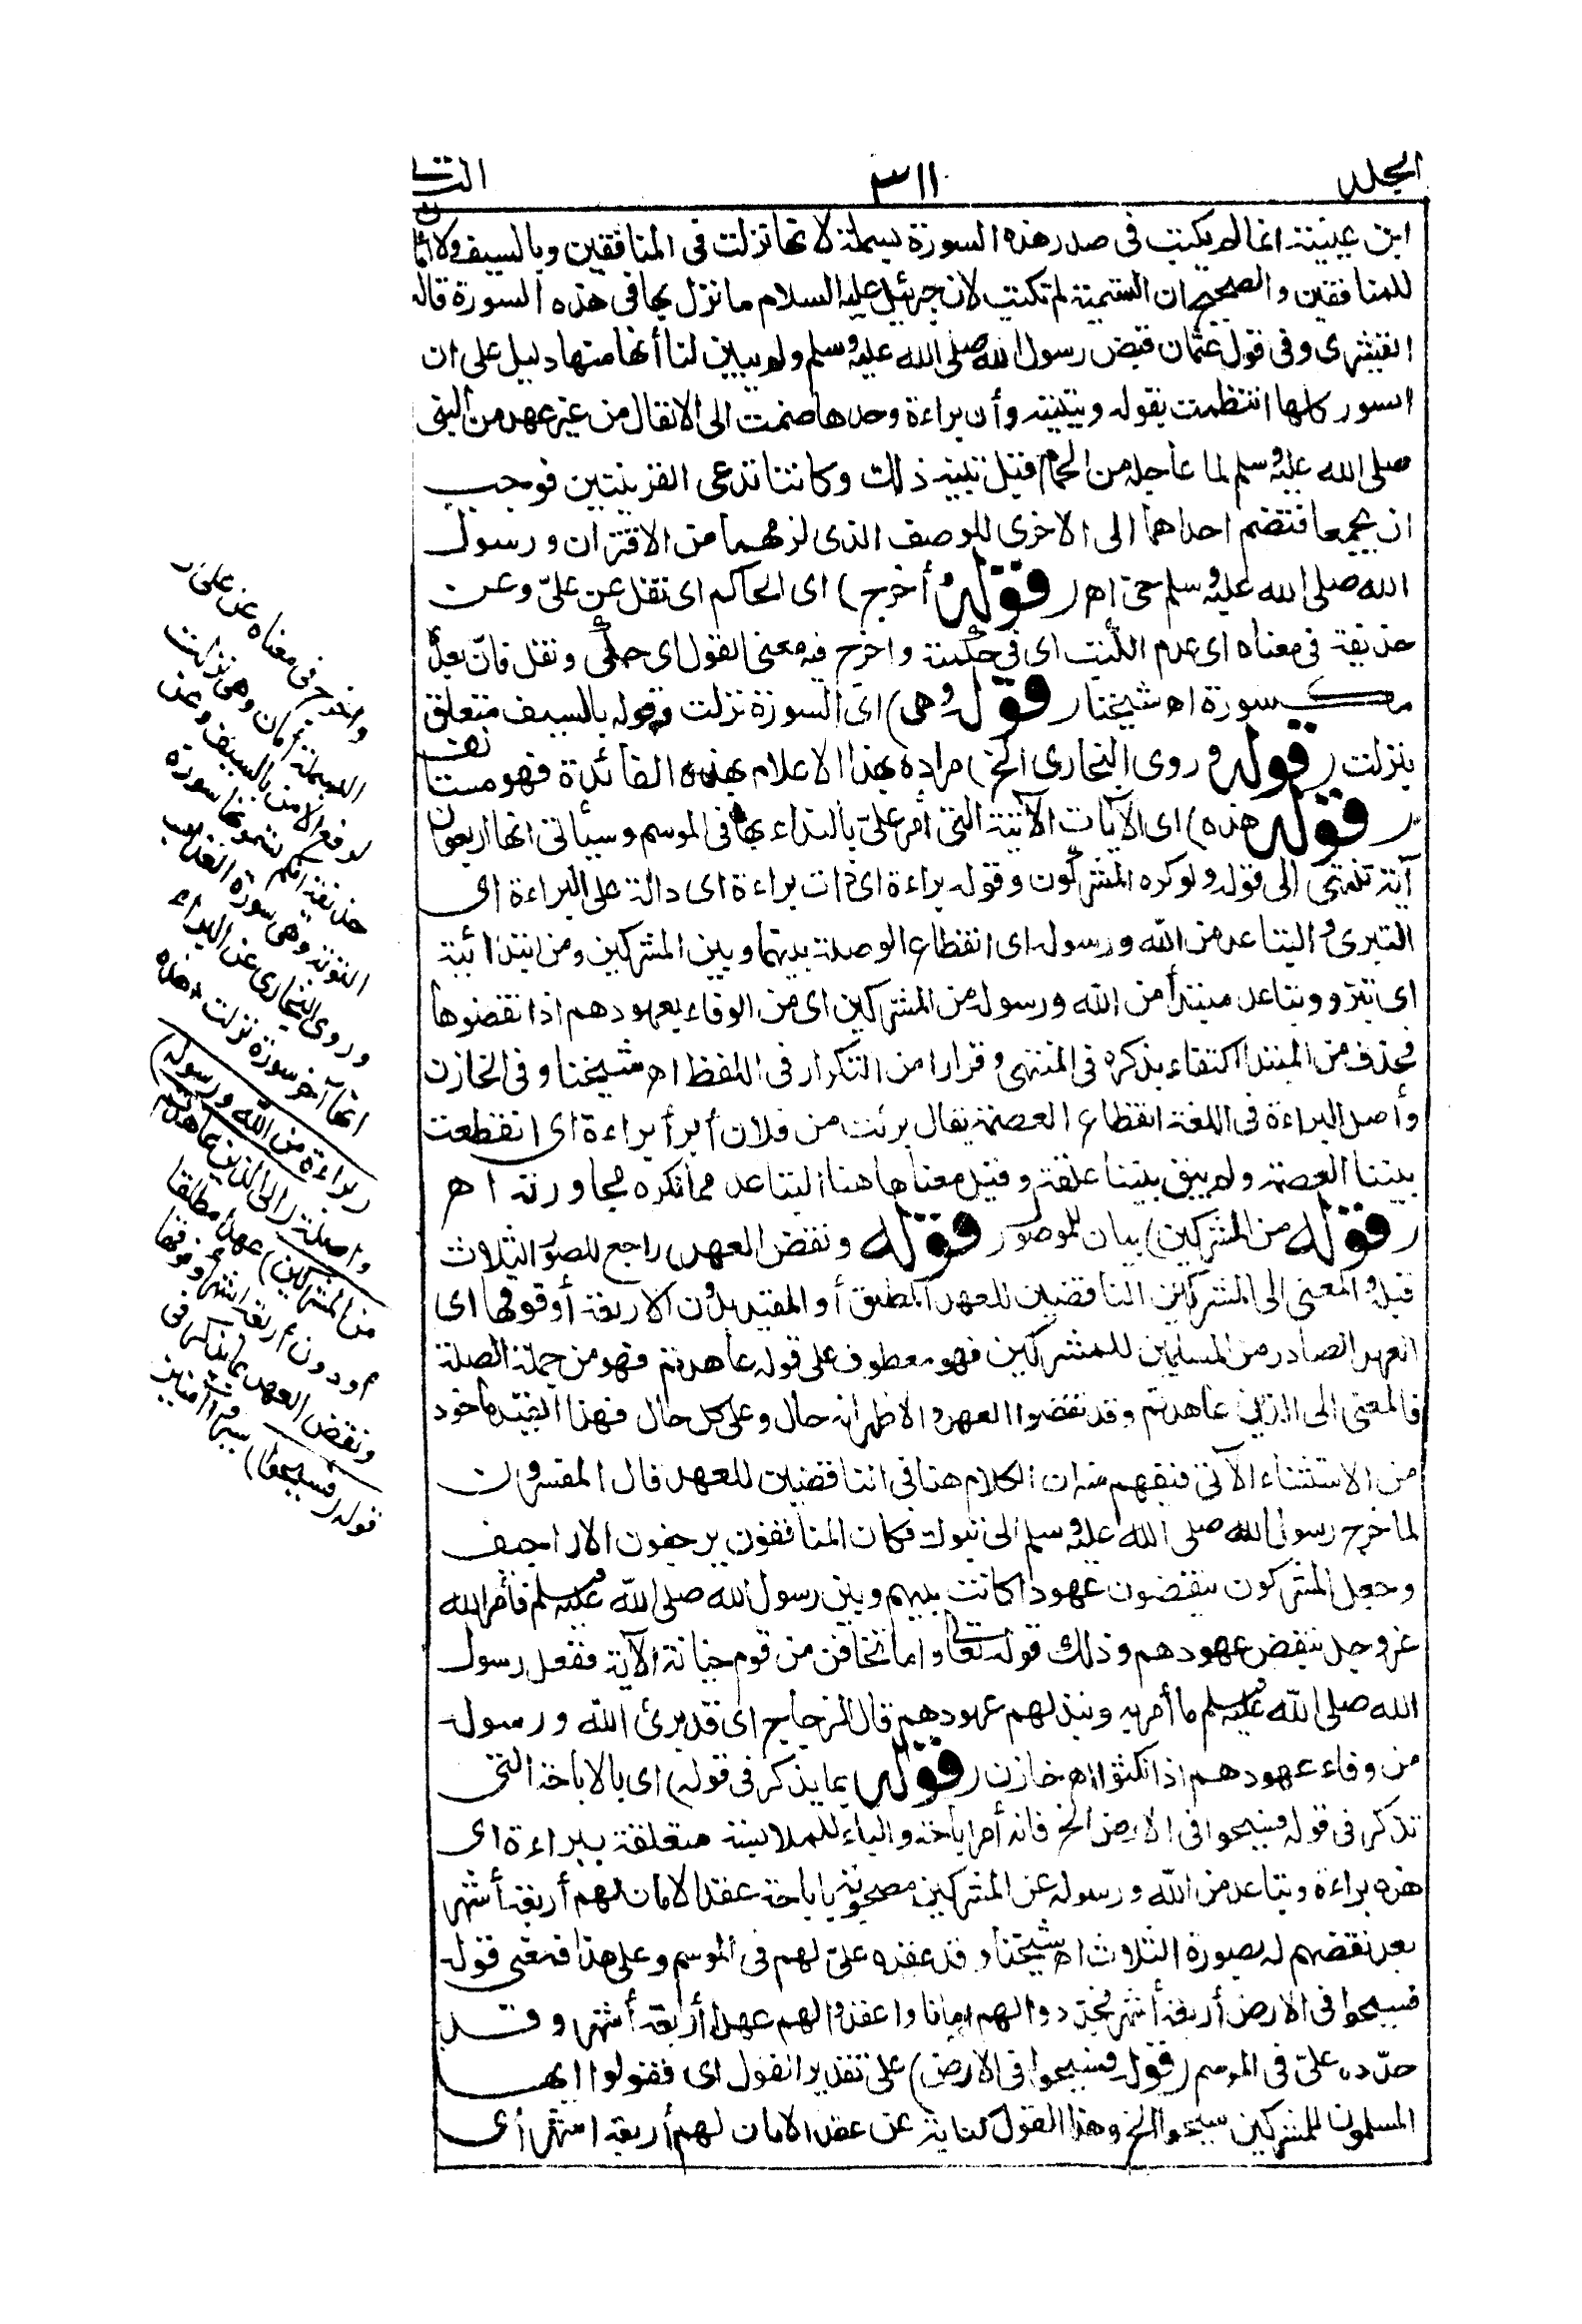 المجلد ٣١١ الثانى
ابن عيينة انما لم يكتب فى صدر هذه السورة بسملة لانها نزلت فى المنافقين وبالسيف ولا أمان
للمنافقين والصحيح ان التسمية لم تكتب لان جبرئيل عليه السلام ما نزل بها فى هذه السورة قاله
القشيرى وفى قول عثمان قبض رسول الله صلى الله عليه وسلم ولم يبين لنا أنها منها دليل على ان
السور كلها انتظمت بقوله وتبيينه وأن براءة وحدها ضمت الى الانفال من غير عهد من النبى
صلى الله عليه وسلم لما عاجله من الحمام قبل تبيينه ذلك وكانتا تدعى القرينتين فوجب
ان يجمعا فتضم احداهما الى الاخرى للوصف الذى لزمهما من الاقتران ورسول
الله صلى الله عليه وسلم حى اه (قوله وأخرج) اى الحاكم اى نقل عن علىّ وعن
حذيفة فى معناه اى عدم الكتب اى فى حكمته واخرج فيه معنى القول اى حكى ونقل فانّ بعدُ
مكسورة اه شيخنا (قوله وهى) اى السورة نزلت وقوله بالسيف متعلق
بنزلت (قوله وروى البخارى الخ) مراده بهذا الاعلام بهذه الفائدة فهو مستأنف
(قوله هذه) اى الآيات الآتية التى أمر علىّ بالنداء بها فى الموسم وسيأتى انها اربعون
آية تنتهى الى قوله ولو كره المشركون وقوله براءة اى ذات براءة اى دالة على البراءة اى
التبرى والتباعد من الله ورسوله اى انقطاع الوصلة بينهما وبين المشركين ومن ابتدائية
اى تبرؤ وتباعد مبتدأ من الله ورسوله من المشركين اى من الوفاء بعهودهم اذا نقضوها
فحذف من المبتدا اكتفاء بذكره فى المنتهى وفرارا من التكرار فى اللفظ اه شيخنا وفى الخازن
وأصل البراءة فى اللغة انقطاع العصمة يقال برئت من فلان أبرأ براءة اى انقطعت
بيننا العصمة ولم يبق بيننا علقة وقيل معناها هنا التباعد مما تكره مجاورته اه
(قوله من المشركين) بيان للموصول (قوله ونقض العهد) راجع للصور الثلاث
قبله والمعنى الى المشركين الناقضين للعهد المطلق أو المقيد بدون الاربعة أو فوقها اى
العهد الصادر من المسلمين للمشركين فهو معطوف على قوله عاهدتم فهو من جملة الصلة
فالمعنى الى الذين عاهدتم وقد نقضوا العهد والاظهر انه حال وعلى كل حال فهذا القيد مأخوذ
من الاستثناء الآتى فيفهم منه ان الكلام هنا فى الناقضين للعهد قال المفسرون
لما خرج رسول الله صلى الله عليه وسلم الى تبوك فكان المنافقون يرجفون الاراجيف
وجعل المشركون ينقضون عهودا كانت بينهم وبين رسول الله صلى الله عليه وسلم فأمر الله
عز وجل بنقض عهودهم وذلك قوله تعالى واما تخافن من قوم خيانة الآية ففعل رسول
الله صلى الله عليه وسلم ما أمر به ونبذ لهم عهودهم قال الزجاج اى قد برئ الله ورسوله
من وفاء عهودهم اذا نكثوا اه خازن (قوله بما يذكر فى قوله) اى بالاباحة التى
تذكر فى قوله فسيحوا فى الارض الخ فانه أمر اباحة والباء للملابسة متعلقة ببراءة اى
هذه براءة وتباعد من الله ورسوله عن المشركين مصحوبة باباحة عقد الامان لهم أربعة أشهر
بعد نقضهم له بصورة الثلاث اه شيخنا وقد عقده علىّ لهم فى الموسم وعلى هذا فمعنى قوله
فسيحوا فى الارض أربعة أشهر فجددوا لهم امانا واعقدوا لهم عهدا أربعة أشهر وقد
جدّده علىّ فى الموسم (قوله فسيحوا فى الارض) على تقدير القول اى فقولوا ايها
المسلمون للمشركين سيحوا الخ وهذا القول كناية عن عقد الامان لهم أربعة اشهر أى
واخرج فى معناه عن على ان
البسملة أمان وهى نزلت
لدفع الامن بالسيف وعن
حذيفة انكم تسمونها سورة
التوبة وهى سورة العذاب
وروى البخارى عن البراء
انها آخر سورة نزلت هذه
(براءة من الله ورسوله)
واصلة (الى الذين عاهدتم
من المشركين) عهدا مطلقا
أو دون أربعة أشهر أو فوقها
ونقض العهد بما يذكر فى
قوله (فسيحوا) سيروا آمنين